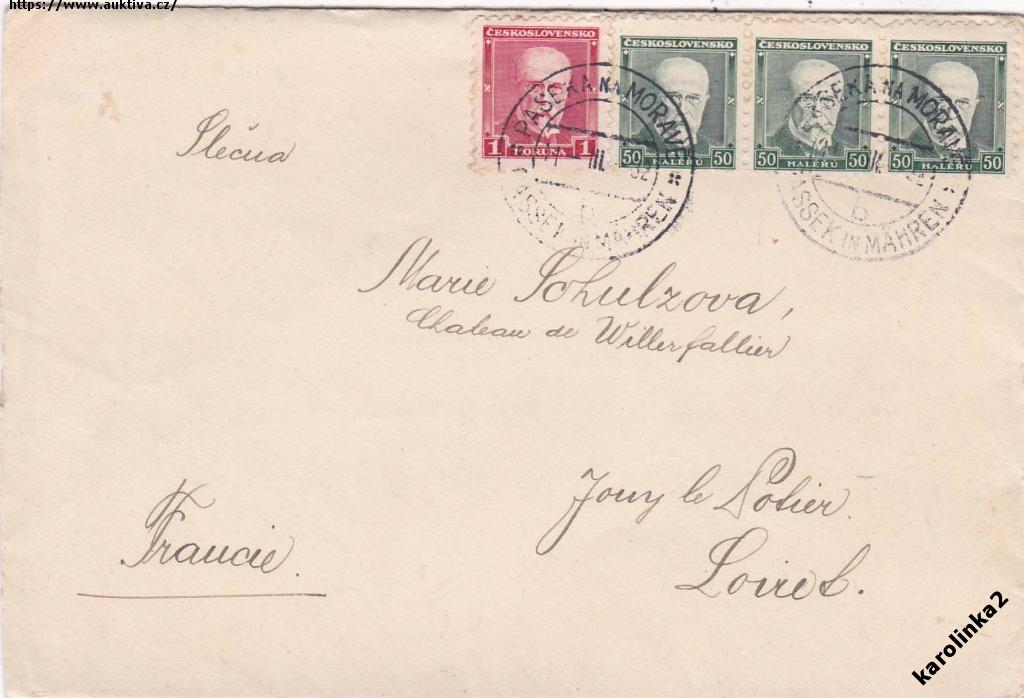 https://www.auktiva.cz/
ČESKOSLOVENSKO ČESKOSLOVENSKO ČESKOSLOVENSKO ČESKOSLOVENSKO
1 KORUNA 1 50 HALÉRŮ 50 50 HALÉRŮ 50 50 HALÉRŮ 50
PASEKA NA MORAVĚ
III. 32
b
PASSEK IN MÄHREN
PASEKA NA MORAVĚ
b
PASSEK IN MÄHREN
Slečna
Marie Schulzova,
Chateau de Willerfallier
Jouy le Potier.
Francie.
Loiret.
karolinka2